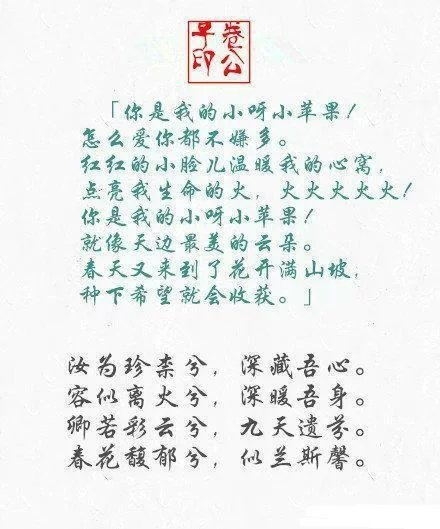 「你是我的小呀小苹果！
怎么爱你都不嫌多。
红红的小脸儿温暖我的心窝，
点亮我生命的火，火火火火火！
你是我的小呀小苹果！
就像天边最美的云朵。
春天又来到了花开满山坡，
种下希望就会收获。」
汝为珍栾兮，深藏吾心。
容似离火兮，深暖吾身。
卿若彩云兮，九天遗芬。
春花馥郁兮，似兰斯馨。